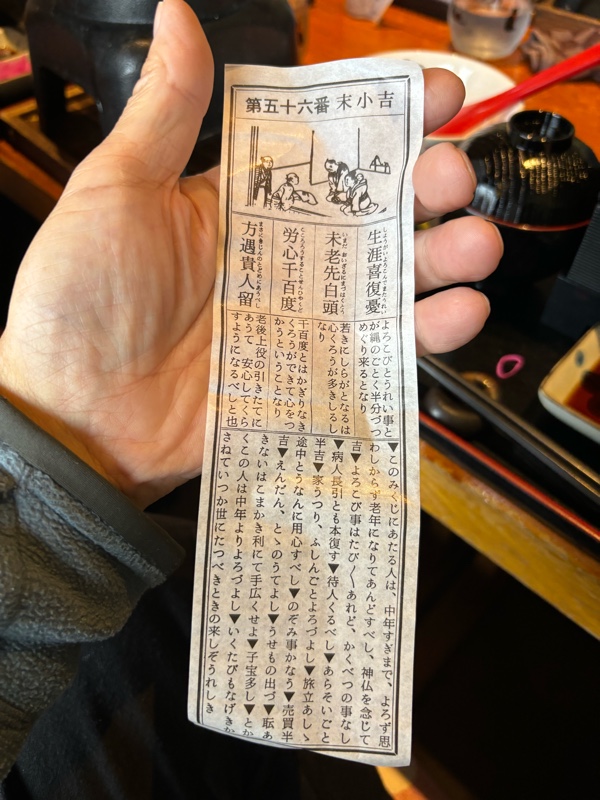 第五十六番 末小吉
しょうがいよろこんでまたうれい
生涯喜復憂
いまだおいざるにまづはくとう
未老先白頭
こころろうすることせんひゃくど
労心千百度
まさにきじんのとどめにあうべし
方遇貴人留
よろこびとうれい事と
が縄のごとく半分づつ
めぐり来るとなり
若きにしらがとなるは
心くろうが多きしるし
なり
千百度とはかぎりなき
くろうができて心をつ
かうということなり
老後上役の引きたてに
あうて 安心してくら
すようになるべしと也
▼このみくじにあたる人は、中年すぎまで、よろず思
わしからず老年になりてあんどすべし、神仏を念じて
吉▼よろこび事はたび〱あれど、かくべつの事なし
▼病人長引とも本復す▼待人くるべし▼あらそいごと
半吉▼家うつり、ふしんごとよろづよし▼旅立あしゝ
途中とうなんに用心すべし▼のぞみ事かなう▼売買半
吉▼えんだん、とゝのうてよし▼うせもの出づ▼耺あ
きないはこまかき利にて手広くせよ▼子宝多し▼とか
くこの人は中年よりよろづよし▼いくたびもなげきか
さねていつか世にたつべきときの来しぞうれしき